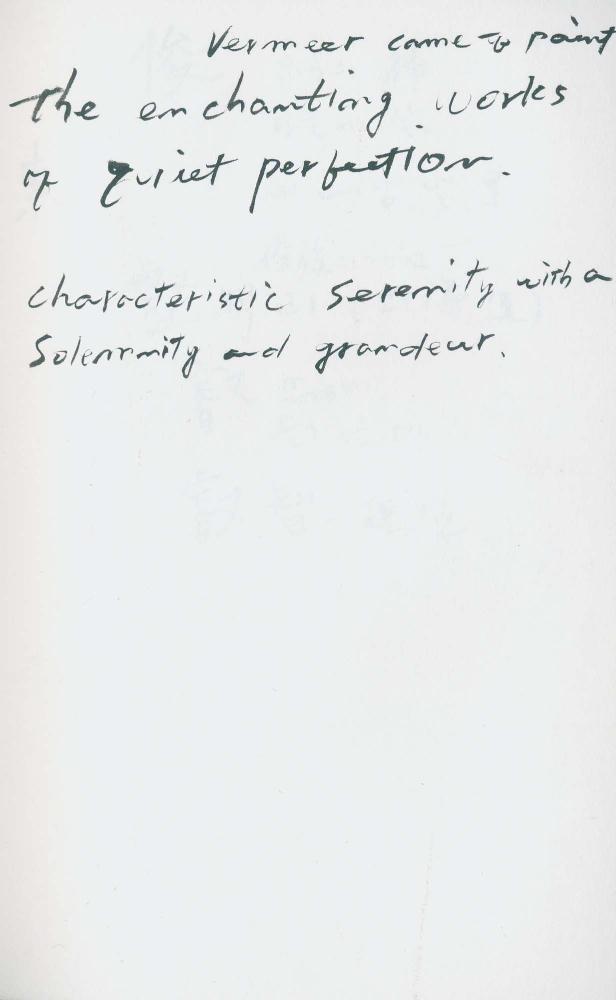 Vermeer came to paint
the enchanting works
of quiet perfection.
characteristic serenity with a
Solemnity and grandeur.